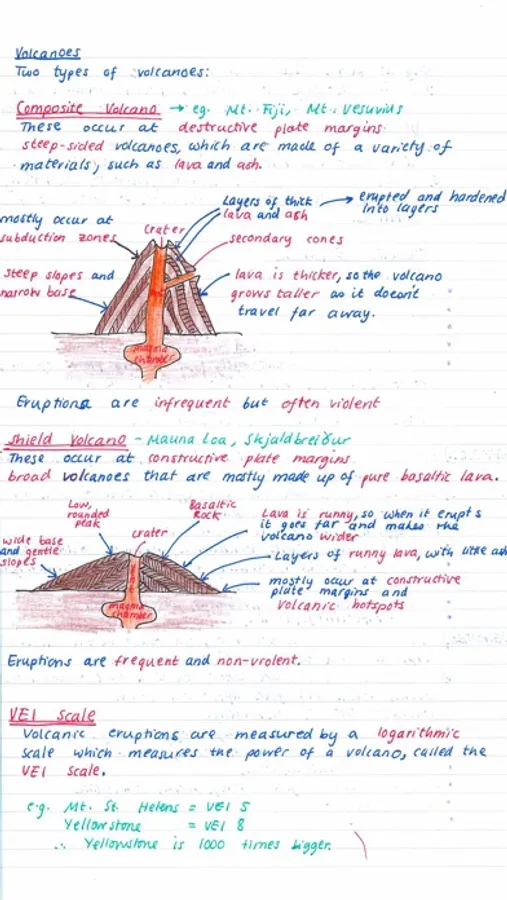 Volcanoes
Two types of volcanoes:
Composite Volcano → eg. Mt. Fiji, Mt. Vesuvius
These occur at destructive plate margins
steep-sided volcanoes, which are made of a variety of
materials, such as lava and ash.
Layers of thick
lava and ash
→ erupted and hardened
into layers
mostly occur at
subduction zones
crater
secondary cones
steep slopes and
narrow base
lava is thicker, so the volcano
grows taller as it doesn't
travel far away.
magma
chamber
Eruptions are infrequent but often violent
Shield Volcano - Mauna Loa, Skjaldbreiður
These occur at constructive plate margins
broad volcanoes that are mostly made up of pure basaltic lava.
Low,
rounded
peak
Basaltic
Rock
Lava is runny, so when it erupts
it goes far and makes the
volcano wider
wide base
and gentle
slopes
crater
Layers of runny lava, with little ash
vent
magma
chamber
mostly occur at constructive
plate margins and
volcanic hotspots
Eruptions are frequent and non-violent.
VEI Scale
Volcanic eruptions are measured by a logarithmic
scale which measures the power of a volcano, called the
VEI scale.
e.g. Mt. St. Helens = VEI 5
Yellowstone = VEI 8
∴ Yellowstone is 1000 times bigger.